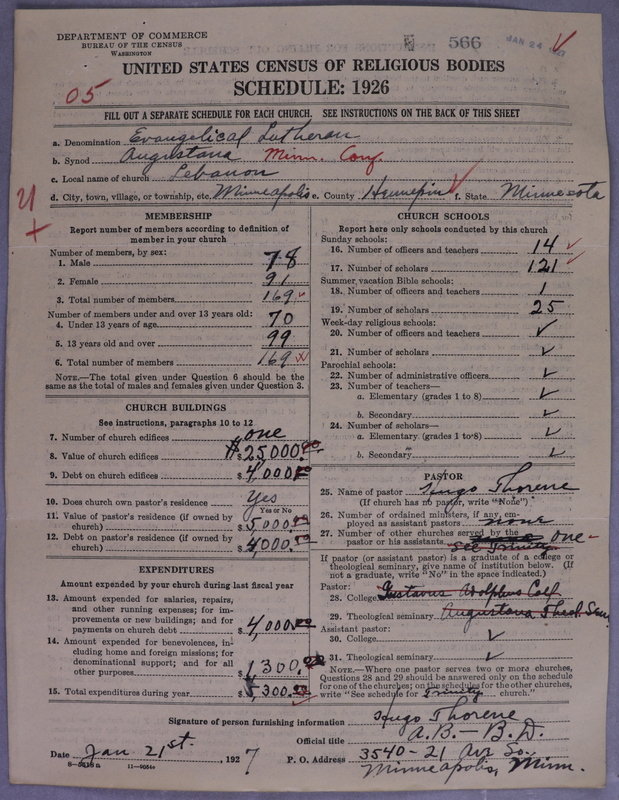 DEPARTMENT OF COMMERCE
BUREAU OF THE CENSUS
WASHINGTON
566
JAN 24
UNITED STATES CENSUS OF RELIGIOUS BODIES
SCHEDULE: 1926
05
FILL OUT A SEPARATE SCHEDULE FOR EACH CHURCH. SEE INSTRUCTIONS ON THE BACK OF THIS SHEET
a. Denomination Evangelical Lutheran
b. Synod Augustana Minn. Conf.
c. Local name of church Lebanon
d. City, town, village, or township, etc. Minneapolis e. County Hennepin f. State Minnesota
MEMBERSHIP
Report number of members according to definition of member in your church
Number of members, by sex:
1. Male 78
2. Female 91
3. Total number of members 169
Number of members under and over 13 years old:
4. Under 13 years of age 70
5. 13 years old and over 99
6. Total number of members 169
NOTE.—The total given under Question 6 should be
same as the total of males and females given under Question 3.
CHURCH BUILDINGS
See instructions, paragraphs 10 to 12
7. Number of church edifices one
8. Value of church edifices $25000.00
9. Debt on church edifices $ 4,000.00
10. Does church own pastor's residence Yes
Yes or No
11. Value of pastor's residence (if owned by
church) $ 5,000.00
12. Debt on pastor's residence (if owned by
church) $ 4000.00
EXPENDITURES
Amount expended by your church during last fiscal year
13. Amount expended for salaries, repairs,
and other running expenses; for im-
provements or new buildings; and for
payments on church debt $ 4,000.00
14. Amount expended for benevolences, in-
cluding home and foreign missions; for
denominational support; and for all
other purposes $ 1300.00
15. Total expenditures during year $ 5,300.00
CHURCH SCHOOLS
Report here only schools conducted by this church
Sunday schools:
16. Number of officers and teachers 14
17. Number of scholars 121
Summer vacation Bible schools:
18. Number of officers and teachers 1
19. Number of scholars 25
Week-day religious schools:
20. Number of officers and teachers ✓
21. Number of scholars ✓
Parochial schools:
22. Number of administrative officers ✓
23. Number of teachers—
a. Elementary (grades 1 to 8) ✓
b. Secondary ✓
24. Number of scholars—
a. Elementary (grades 1 to 8) ✓
b. Secondary ✓
PASTOR
25. Name of pastor Hugo Thorene
(If church has no pastor, write "None")
26. Number of ordained ministers, if any, em-
ployed as assistant pastors none
27. Number of other churches served by the
pastor or his assistants. See Trinity one
If pastor (or assistant pastor) is a graduate of a college or
theological seminary, give name of institution below. (If
not a graduate, write "No" in the space indicated.)
Pastor:
28. College Gustavus Adolphus Coll.
29. Theological seminary Augustana Theol. Sem
Assistant pastor:
30. College ✓
31. Theological seminary ✓
NOTE.—Where one pastor serves two or more churches,
Questions 28 and 29 should be answered only on the schedule
for one of the churches; on the schedules for the other churches,
write "See schedule for Trinity church."
Signature of person furnishing information Hugo Thorene
Official title A.B. — B.D.
Date Jan. 21st. , 1927 P. O. Address 3540-21 Av. So.
Minneapolis, Minn.
11—9684